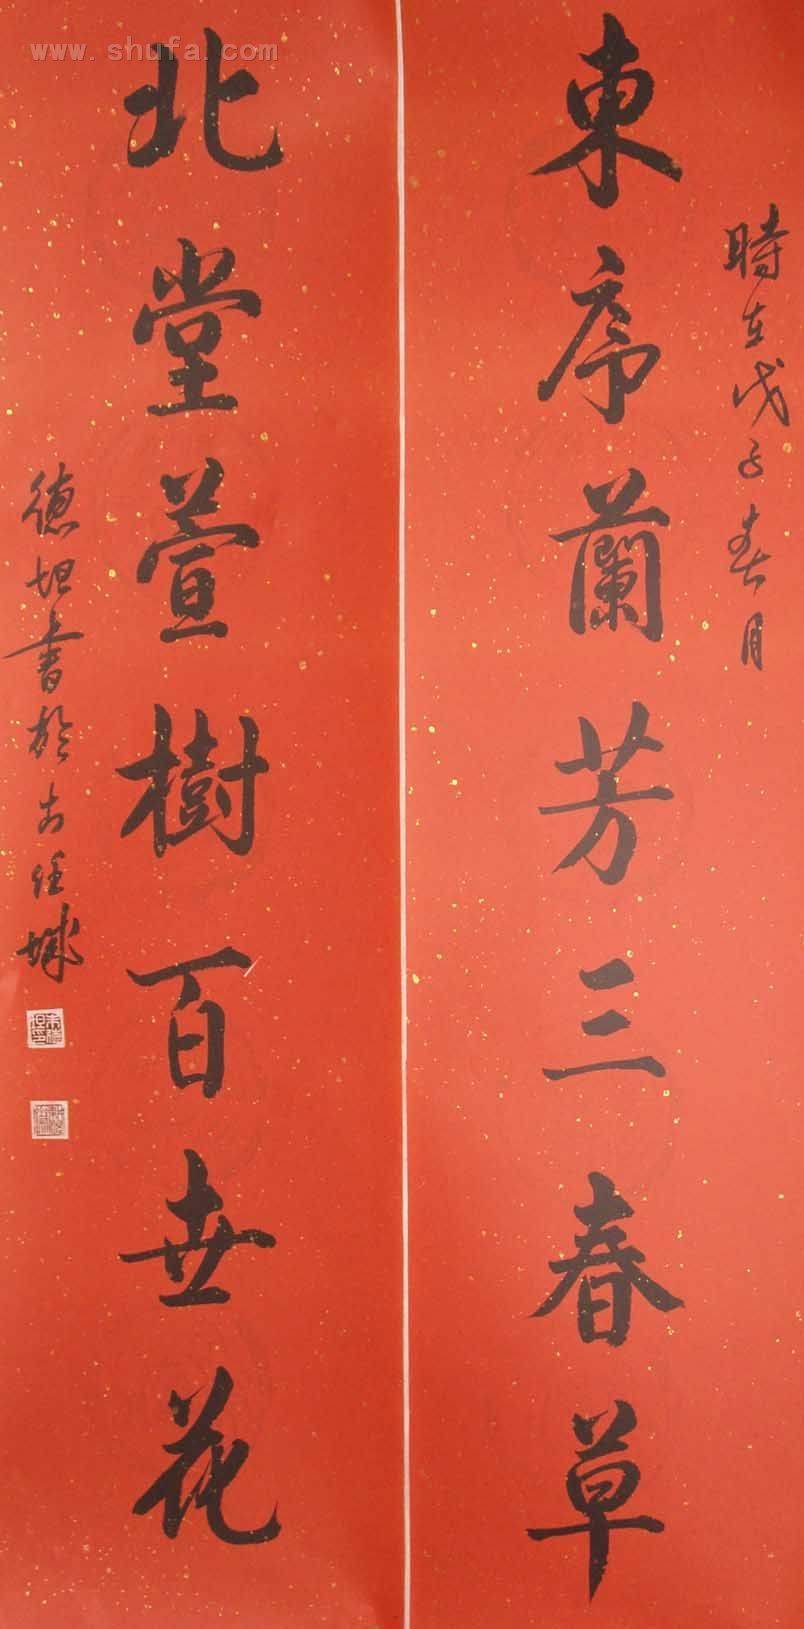 www.shufa.com
東序蘭芳三春草
時在戊子春月
北堂萱樹百世花
德坦書於古任城